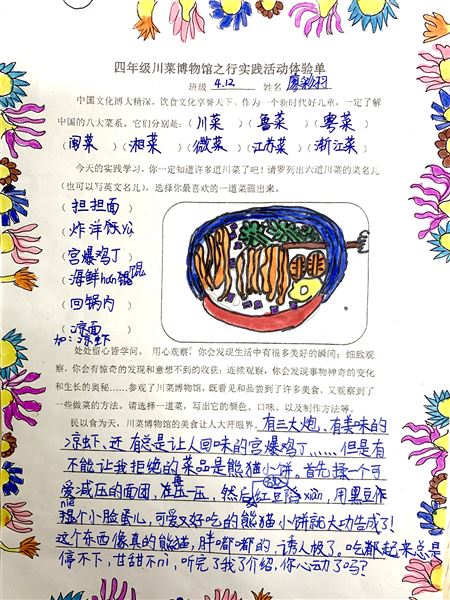 四年级川菜博物馆之行实践活动体验单
班级 4.12 姓名 廖彩羽
中国文化博大精深，饮食文化享誉天下。作为一个新时代好儿童，一定了解
中国的八大菜系。它们分别是：（川菜）（鲁菜）（粤菜）
（闽菜）（湘菜）（徽菜）（江苏菜）（浙江菜）
今天的实践学习，你一定知道许多道川菜了吧！请罗列出六道川菜的菜名儿
（也可以写英文名儿），选择你最喜欢的一道菜画出来。
（担担面）
（炸洋饭yù）
（宫爆鸡丁）
（海鲜hún 馄）
（回锅肉）
（凉面）
加：凉虾
处处留心皆学问。用心观察，你会发现生活中有很多美好的瞬间；细致观
察，你会有惊奇的发现和意想不到的收获；连续观察，你会发现事物神奇的变化
和生长的奥秘……参观了川菜博物馆，既看见和品尝到了许多美食，又观察到了
一些做菜的方法。请选择一道菜，写出它的颜色、口味、以及制作方法等。
民以食为天，川菜博物馆的美食让人大开眼界，有三大炮、有美味的
凉虾、还有总是让人回味的宫爆鸡丁……但是有
不能让我拒绝的菜品是熊猫小饼，首先揉一个可
爱减压的面团，在再压一压，然后红豆馅xiàn，用黑豆作
niē捏个小脸蛋儿，可爱又好吃的熊猫小饼就大功告成了！
这个东西像真的熊猫，胖嘟嘟的，诱人极了。吃都起来总是
停不下，甘甜不nì，听完了我了介绍，你心动了吗？